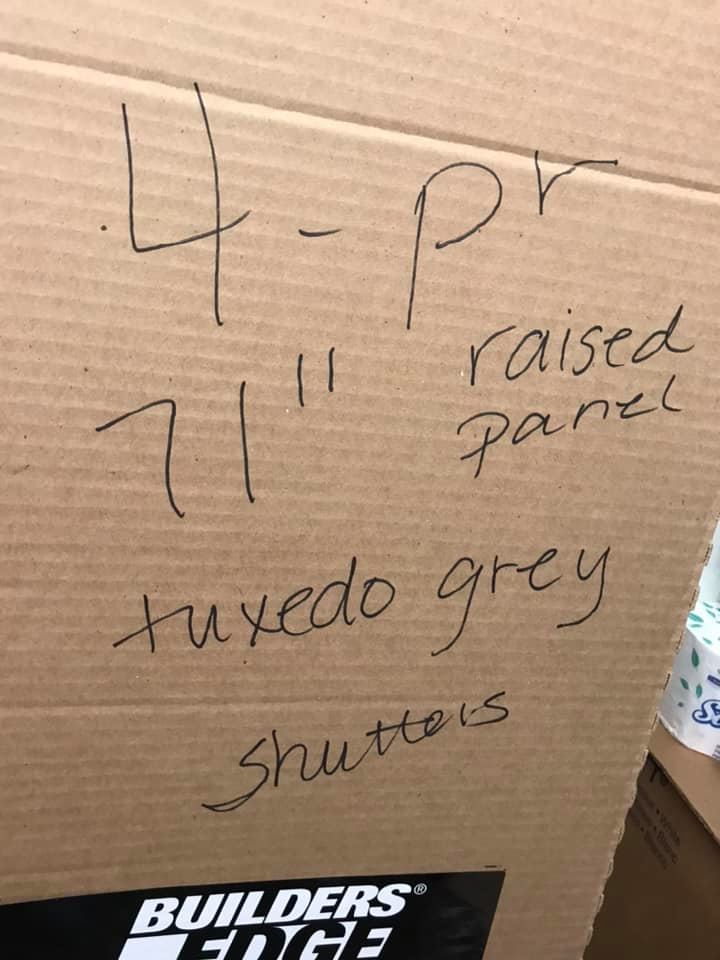 4 - pr
71" raised
panel
tuxedo grey
shutters
BUILDERS®
EDGE